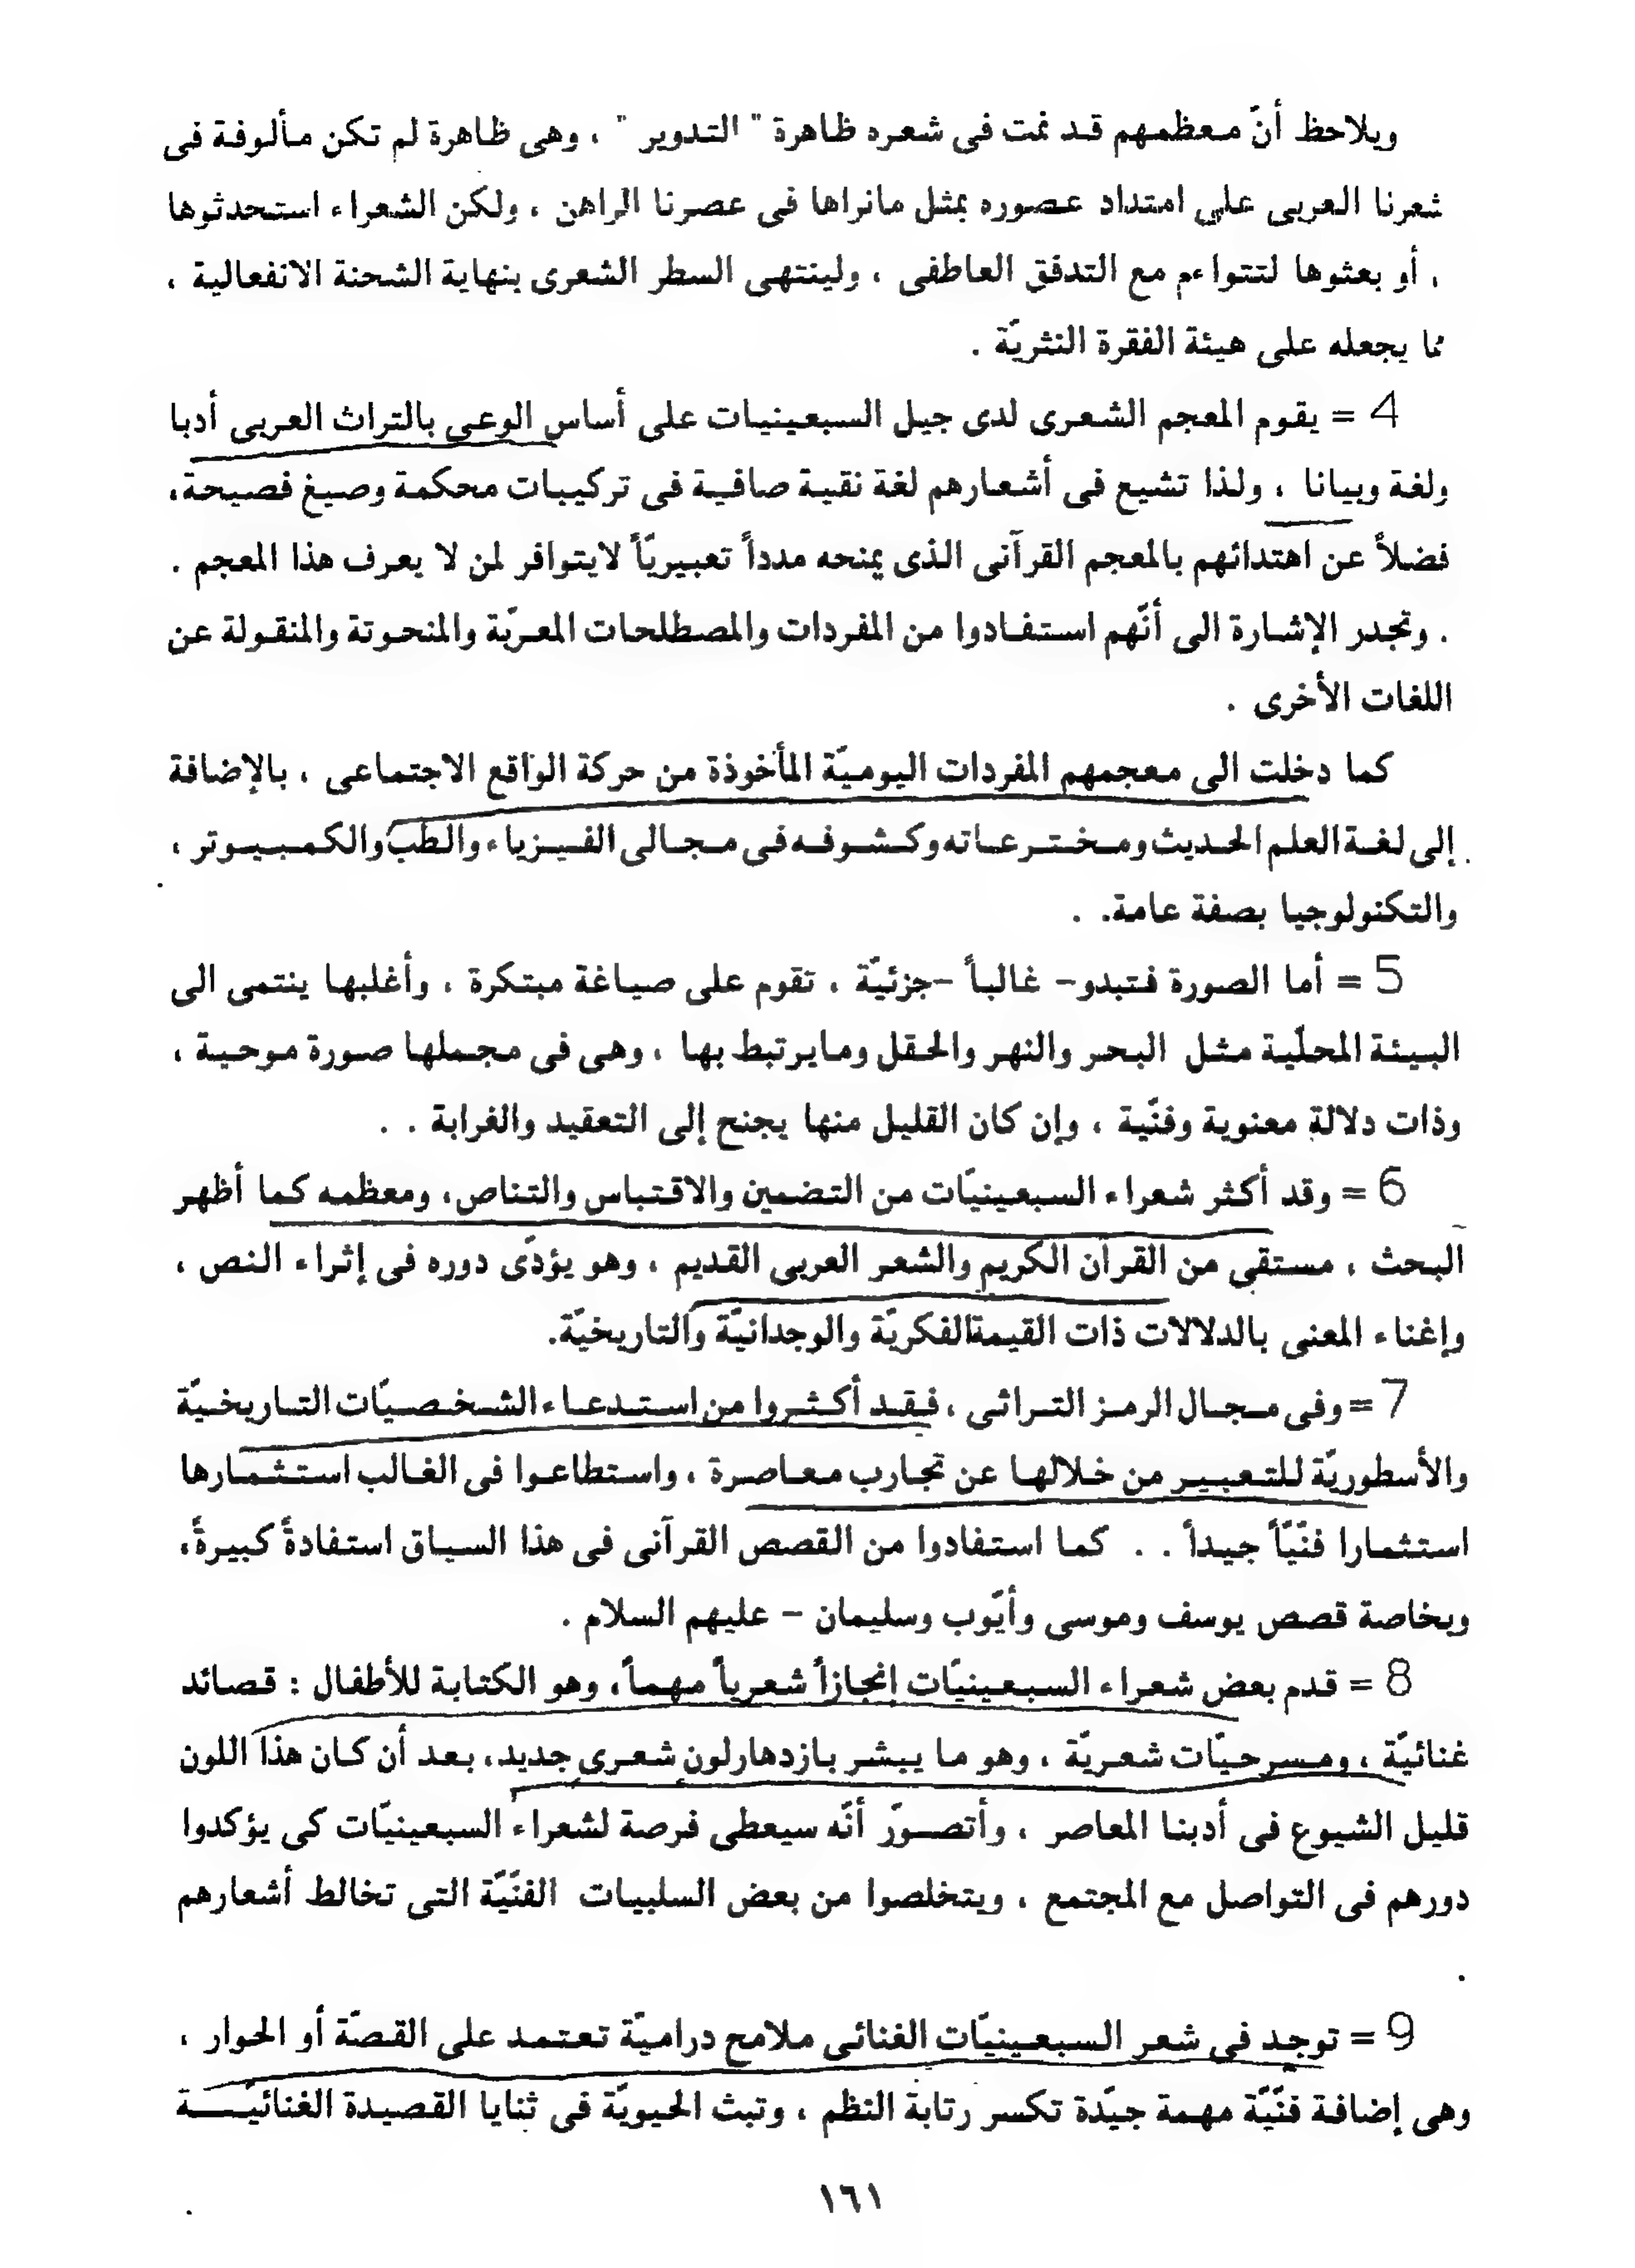 ويلاحظ أنّ معظمهم قد نمت فى شعره ظاهرة " التدوير " ، وهى ظاهرة لم تكن مألوفة فى
شعرنا العربى على امتداد عصوره بمثل مانراها فى عصرنا الراهن ، ولكن الشعراء استحدثوها
، أو بعثوها لتتواءم مع التدفق العاطفى ، ولينتهى السطر الشعرى بنهاية الشحنة الانفعالية ،
مما يجعله على هيئة الفقرة النثريّة .
4 = يقوم المعجم الشعرى لدى جيل السبعينيات على أساس الوعى بالتراث العربى أدبا
ولغة وبيانا ، ولذا تشيع فى أشعارهم لغة نقية صافية فى تركيبات محكمة وصيغ فصيحة،
فضلاً عن اهتدائهم بالمعجم القرآنى الذى يمنحه مدداً تعبيريّاً لايتوافر لمن لا يعرف هذا المعجم .
. وتجدر الإشارة الى أنّهم استفادوا من المفردات والمصطلحات المعرّبة والمنحوتة والمنقولة عن
اللغات الأخرى .
كما دخلت الى معجمهم المفردات اليوميّة المأخوذة من حركة الواقع الاجتماعى ، بالإضافة
إلى لغة العلم الحديث ومخترعاته وكشوفه فى مجالى الفيزياء والطب والكمبيوتر ،
والتكنولوجيا بصفة عامة. .
5 = أما الصورة فتبدو- غالباً -جزئيّة ، تقوم على صياغة مبتكرة ، وأغلبها ينتمى الى
البيئة المحلّية مثل البحر والنهر والحقل ومايرتبط بها ، وهى فى مجملها صورة موحية ،
وذات دلالة معنوية وفنّية ، وإن كان القليل منها يجنح إلى التعقيد والغرابة . .
6 = وقد أكثر شعراء السبعينيّات من التضمين والاقتباس والتناص، ومعظمه كما أظهر
البحث ، مستقى من القرآن الكريم والشعر العربى القديم ، وهو يؤدّى دوره فى إثراء النص ،
وإغناء المعنى بالدلالات ذات القيمةالفكريّة والوجدانيّة والتاريخيّة.
7 = وفى مجال الرمز التراثى ، فقد أكثروا من استدعاء الشخصيّات التاريخيّة
والأسطوريّة للتعبير من خلالها عن تجارب معاصرة ، واستطاعوا فى الغالب استثمارها
استثمارا فنّيّاً جيداً . . كما استفادوا من القصص القرآنى فى هذا السياق استفادةً كبيرةً،
وبخاصة قصص يوسف وموسى وأيّوب وسليمان – عليهم السلام .
8 = قدم بعض شعراء السبعينيّات إنجازاً شعرياً مهماً، وهو الكتابة للأطفال : قصائد
غنائيّة ، ومسرحيّات شعريّة ، وهو ما يبشر بازدهارلون شعرى جديد، بعد أن كان هذا اللون
قليل الشيوع فى أدبنا المعاصر ، وأتصوّر أنّه سيعطى فرصة لشعراء السبعينيّات كى يؤكدوا
دورهم فى التواصل مع المجتمع ، ويتخلصوا من بعض السلبيات الفنّيّة التى تخالط أشعارهم
.
9 = توجد فى شعر السبعينيّات الغنائى ملامح دراميّة تعتمد على القصّة أو الحوار ،
وهى إضافة فنّيّة مهمة جيّدة تكسر رتابة النظم ، وتبث الحيويّة فى ثنايا القصيدة الغنائيّـــة
١٦١